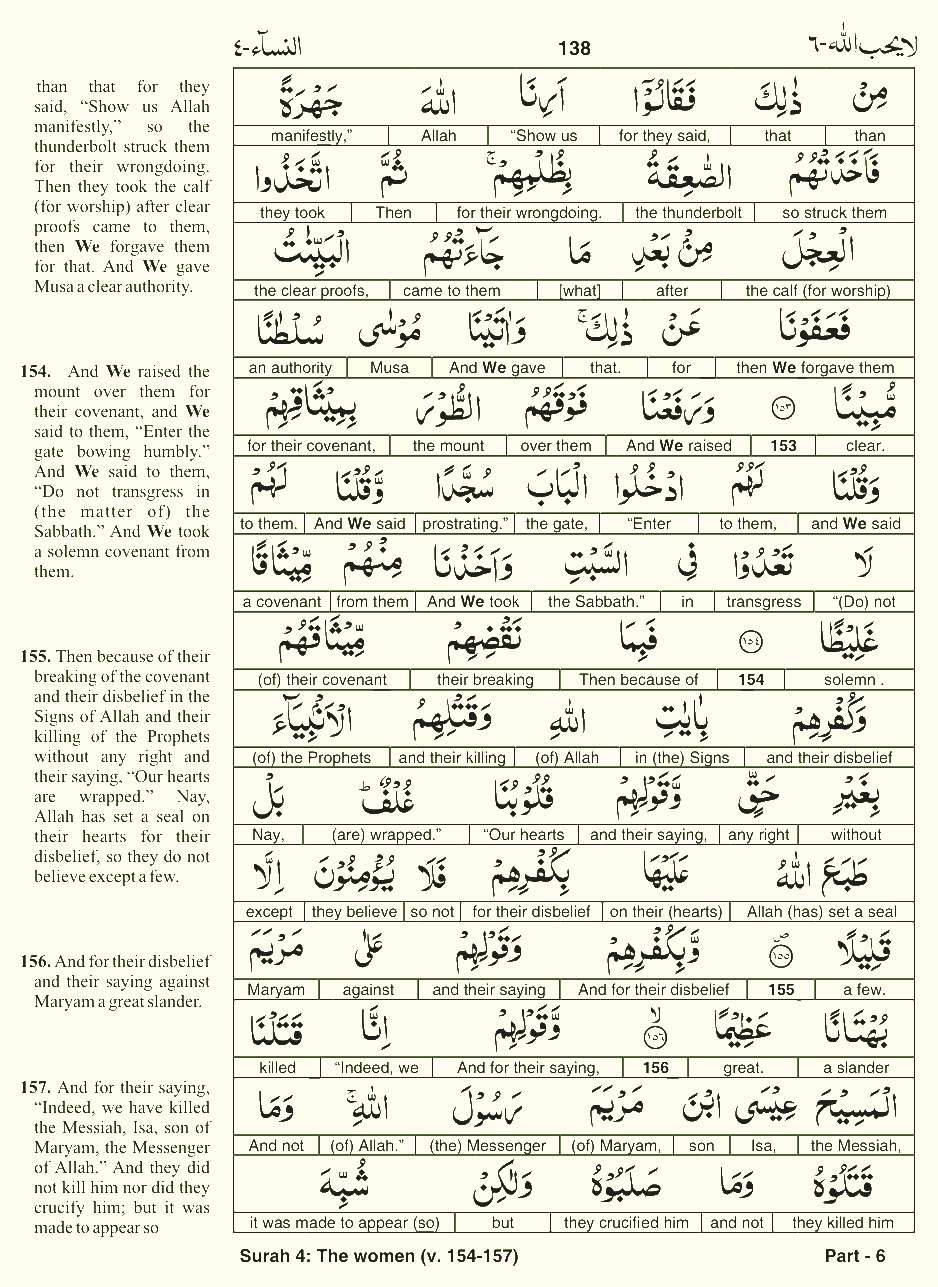 النسآء-٤ 138 لا يحب الله-٦
than that for they
said, “Show us Allah
manifestly,” so the
thunderbolt struck them
for their wrongdoing.
Then they took the calf
(for worship) after clear
proofs came to them,
then We forgave them
for that. And We gave
Musa a clear authority.
154. And We raised the
mount over them for
their covenant, and We
said to them, “Enter the
gate bowing humbly.”
And We said to them,
“Do not transgress in
(the matter of) the
Sabbath.” And We took
a solemn covenant from
them.
155. Then because of their
breaking of the covenant
and their disbelief in the
Signs of Allah and their
killing of the Prophets
without any right and
their saying, “Our hearts
are wrapped.” Nay,
Allah has set a seal on
their hearts for their
disbelief, so they do not
believe except a few.
156. And for their disbelief
and their saying against
Maryam a great slander.
157. And for their saying,
“Indeed, we have killed
the Messiah, Isa, son of
Maryam, the Messenger
of Allah.” And they did
not kill him nor did they
crucify him; but it was
made to appear so
مِنْ ذٰلِكَ فَقَالُوْٓا اَرِنَا اللّٰهَ جَهْرَةً
manifestly,” Allah “Show us for they said, that than
فَاَخَذَتْهُمُ الصّٰعِقَةُ بِظُلْمِهِمْ ۚ ثُمَّ اتَّخَذُوا
they took Then for their wrongdoing. the thunderbolt so struck them
الْعِجْلَ مِنْۢ بَعْدِ مَا جَآءَتْهُمُ الْبَيِّنٰتُ
the clear proofs, came to them [what] after the calf (for worship)
فَعَفَوْنَا عَنْ ذٰلِكَ ۚ وَاٰتَيْنَا مُوْسٰى سُلْطٰنًا
an authority Musa And We gave that. for then We forgave them
مُّبِيْنًا ١٥٣ وَرَفَعْنَا فَوْقَهُمُ الطُّوْرَ بِمِيْثَاقِهِمْ
for their covenant, the mount over them And We raised 153 clear.
وَقُلْنَا لَهُمُ ادْخُلُوا الْبَابَ سُجَّدًا وَّقُلْنَا لَهُمْ
to them. And We said prostrating.” the gate, “Enter to them, and We said
لَا تَعْدُوْا فِى السَّبْتِ وَاَخَذْنَا مِنْهُمْ مِّيْثَاقًا
a covenant from them And We took the Sabbath.” in transgress “(Do) not
غَلِيْظًا ١٥٤ فَبِمَا نَقْضِهِمْ مِّيْثَاقَهُمْ
(of) their covenant their breaking Then because of 154 solemn .
وَكُفْرِهِمْ بِاٰيٰتِ اللّٰهِ وَقَتْلِهِمُ الْاَنْۢبِيَآءَ
(of) the Prophets and their killing (of) Allah in (the) Signs and their disbelief
بِغَيْرِ حَقٍّ وَّقَوْلِهِمْ قُلُوْبُنَا غُلْفٌ ؕ بَلْ
Nay, (are) wrapped.” “Our hearts and their saying, any right without
طَبَعَ اللّٰهُ عَلَيْهَا بِكُفْرِهِمْ فَلَا يُؤْمِنُوْنَ اِلَّا
except they believe so not for their disbelief on their (hearts) Allah (has) set a seal
قَلِيْلًا ١٥٥ وَّبِكُفْرِهِمْ وَقَوْلِهِمْ عَلٰى مَرْيَمَ
Maryam against and their saying And for their disbelief 155 a few.
بُهْتَانًا عَظِيْمًا ١٥٦ وَّقَوْلِهِمْ اِنَّا قَتَلْنَا
killed “Indeed, we And for their saying, 156 great. a slander
الْمَسِيْحَ عِيْسَى ابْنَ مَرْيَمَ رَسُوْلَ اللّٰهِ ۚ وَمَا
And not (of) Allah.” (the) Messenger (of) Maryam, son Isa, the Messiah,
قَتَلُوْهُ وَمَا صَلَبُوْهُ وَلٰكِنْ شُبِّهَ
it was made to appear (so) but they crucified him and not they killed him
Surah 4: The women (v. 154-157) Part - 6